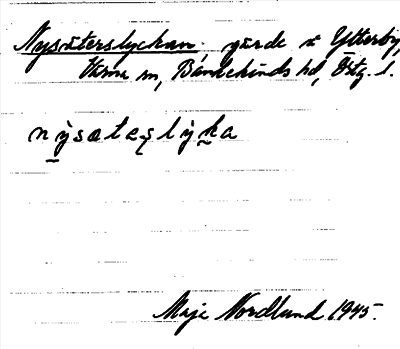 Nysäterslyckan. gärde å Ytterby,
Värna sn, Bankekinds hd, Östg. l.
nỳsætesl̀yka
Maje Nordlund 1945.